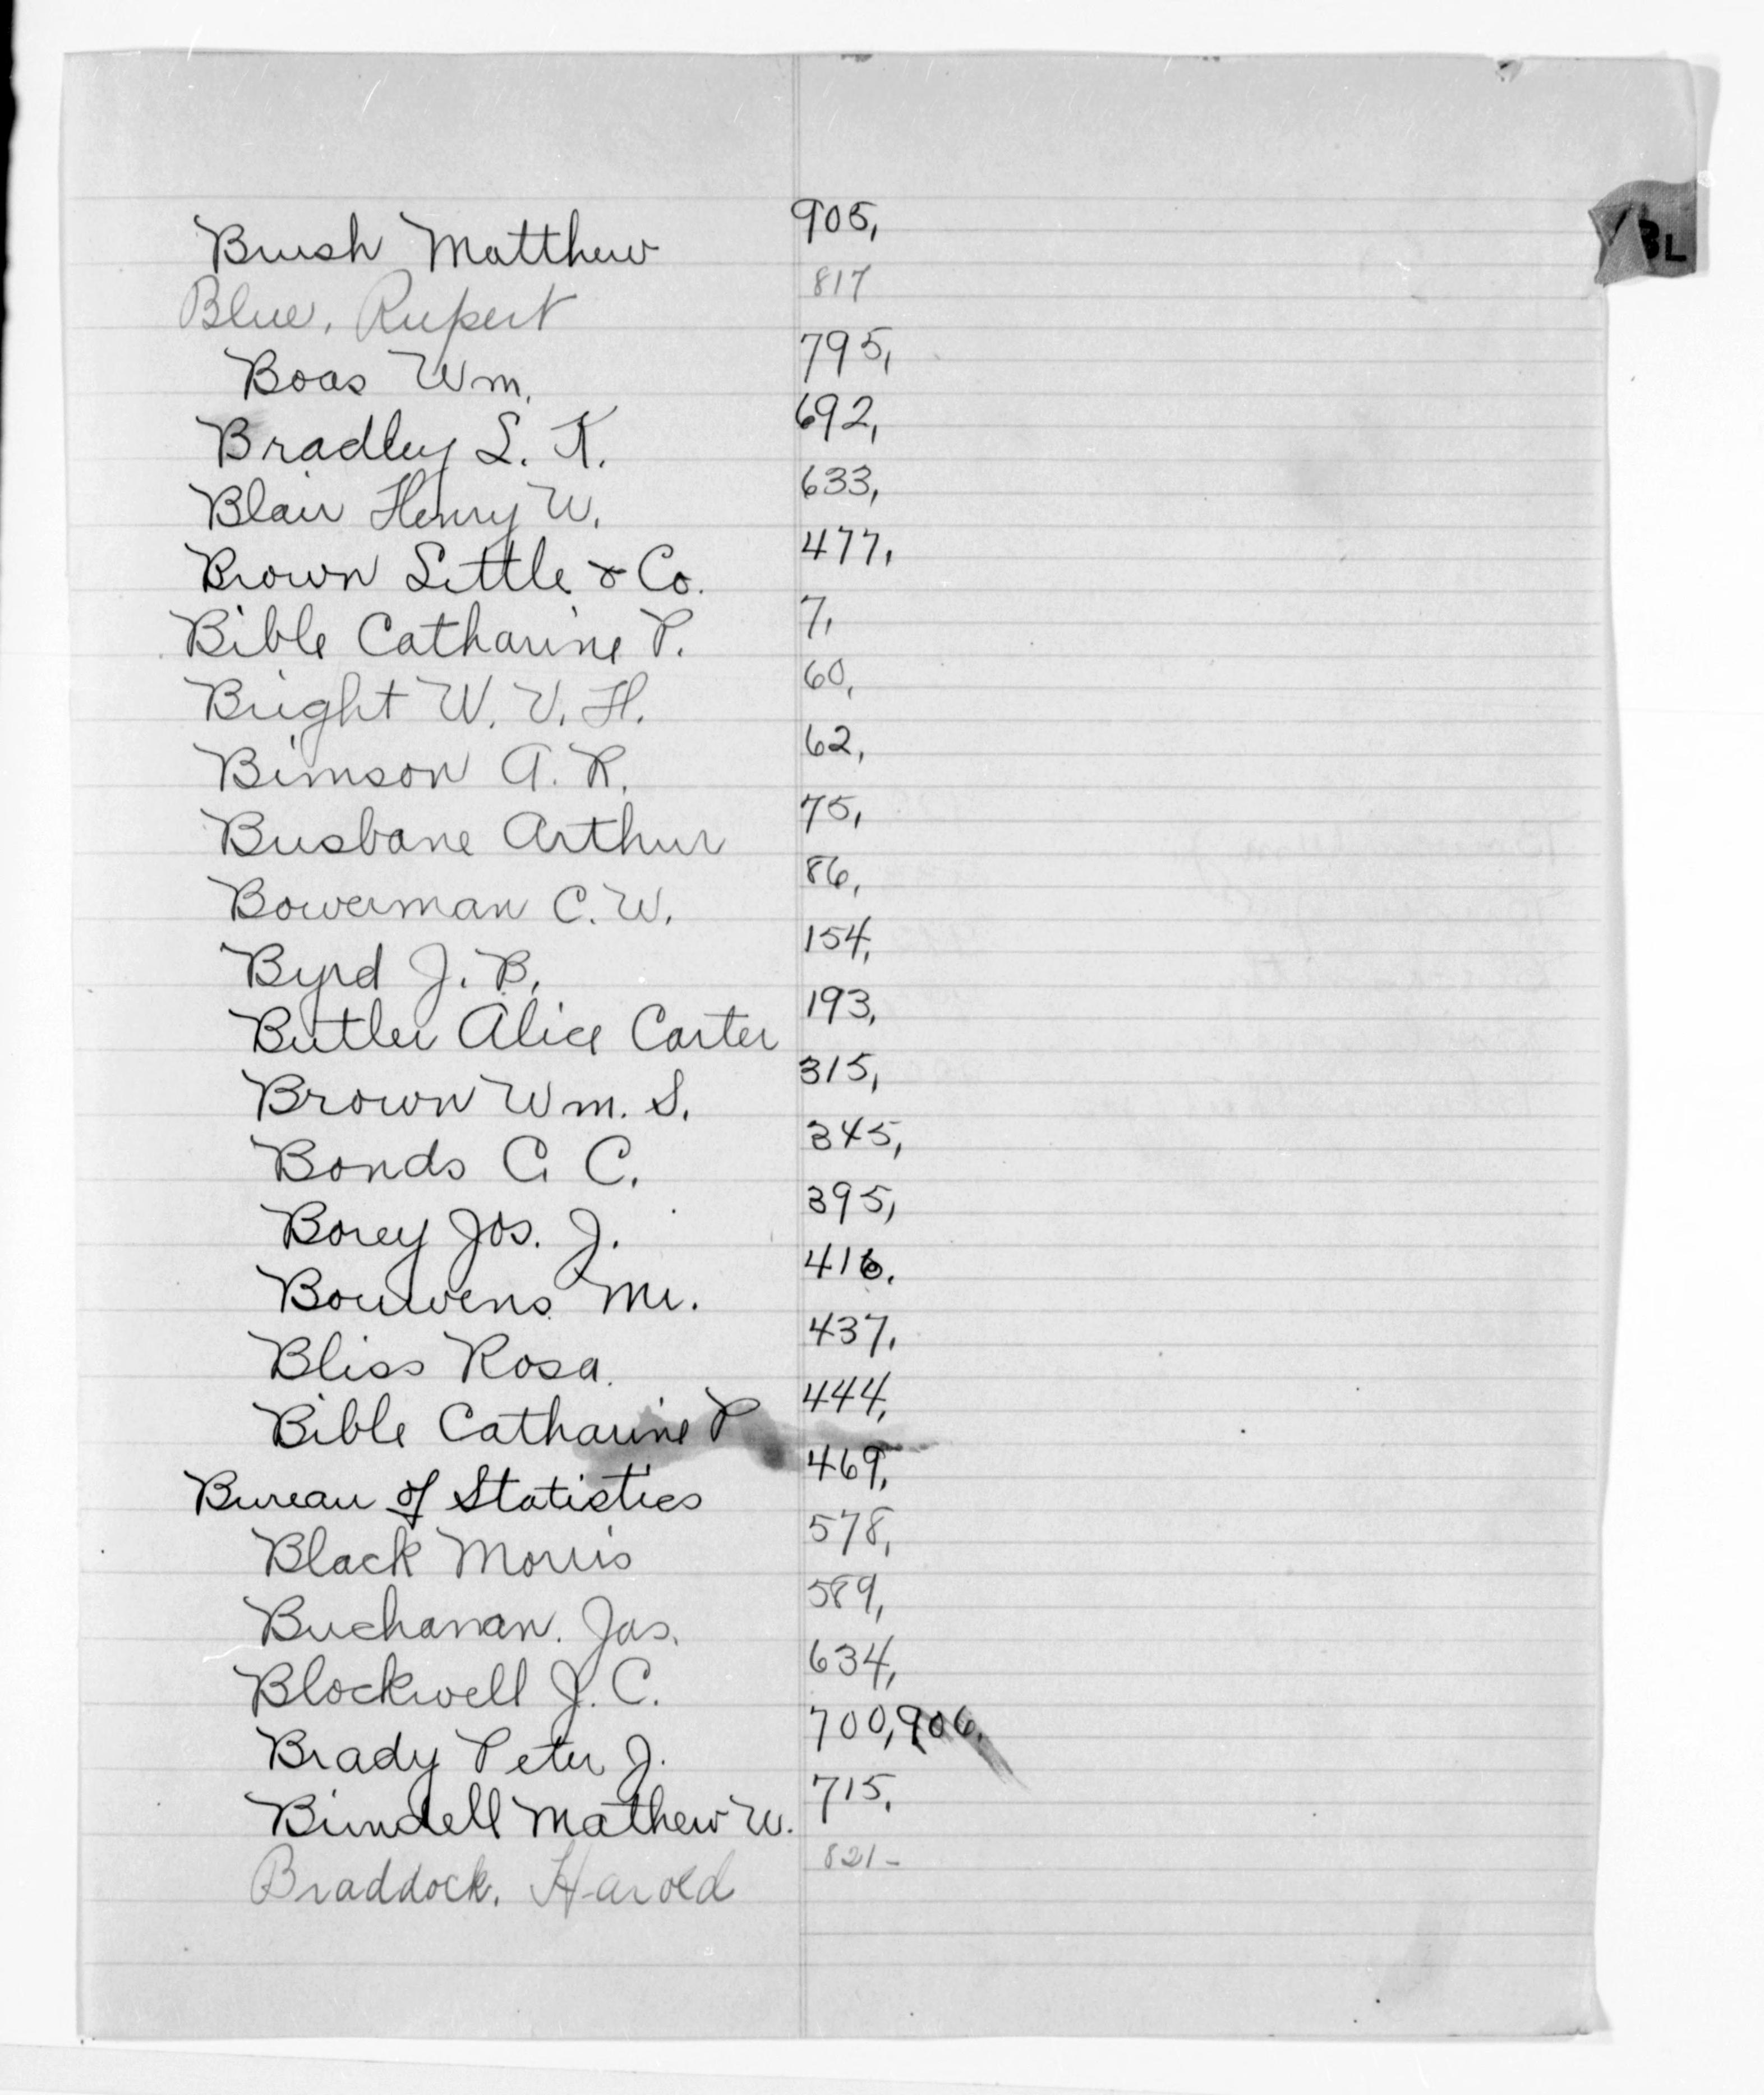 BL
Brush Matthew 905,
Blue, Rupert 817
Boas Wm. 795,
Bradley L. K. 692,
Blair Henry W. 633,
Brown Little & Co. 477,
Bible Catharine P. 7,
Bright W. V. H. 60,
Bimson A. R. 62,
Brisbane Arthur 75,
Bowerman C. W. 86,
Byrd J. B. 154,
Butler Alice Carter 193,
Brown Wm. S. 315,
Bonds A C. 345,
Borey Jos. J. 395,
Bouwens Mr. 416,
Bliss Rosa. 437,
Bible Catharine P 444,
Bureau of Statistics 469,
Black Morris 578,
Buchanan. Jas. 589,
Blockwell J. C. 634,
Brady Peter J. 700, 906,
Brindell Mathew W. 715,
Braddock, Harold 821-